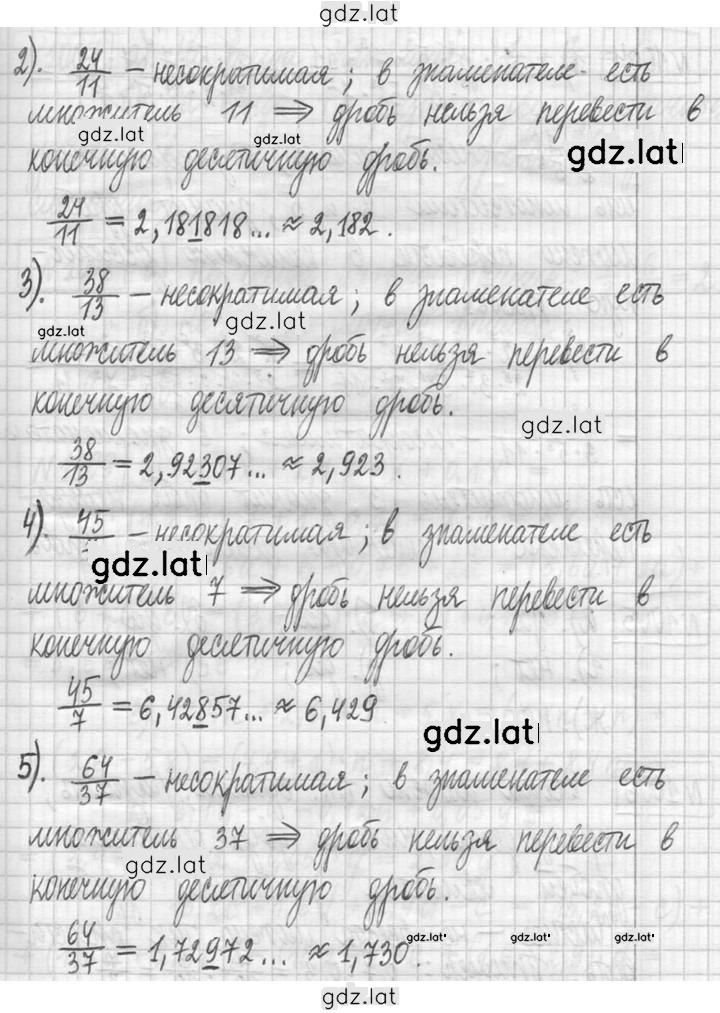 gdz.lat
2). 24/11 – несократимая; в знаменателе есть
множитель 11 ⟹ дробь нельзя перевести в
gdz.lat gdz.lat gdz.lat
конечную десятичную дробь.
24/11 = 2,181818... ≈ 2,182.
3). 38/13 – несократимая; в знаменателе есть
gdz.lat gdz.lat
множитель 13 ⟹ дробь нельзя перевести в
конечную десятичную дробь.
gdz.lat
38/13 = 2,92307... ≈ 2,923.
4). 45/ – несократимая; в знаменателе есть
gdz.lat
множитель 7 ⟹ дробь нельзя перевести в
конечную десятичную дробь.
45/7 = 6,42857... ≈ 6,429
gdz.lat
5). 64/37 – несократимая; в знаменателе есть
множитель 37 ⟹ дробь нельзя перевести в
gdz.lat
конечную десятичную дробь.
64/37 = 1,72972... ≈ 1,730.
gdz.lat gdz.lat gdz.lat
gdz.lat